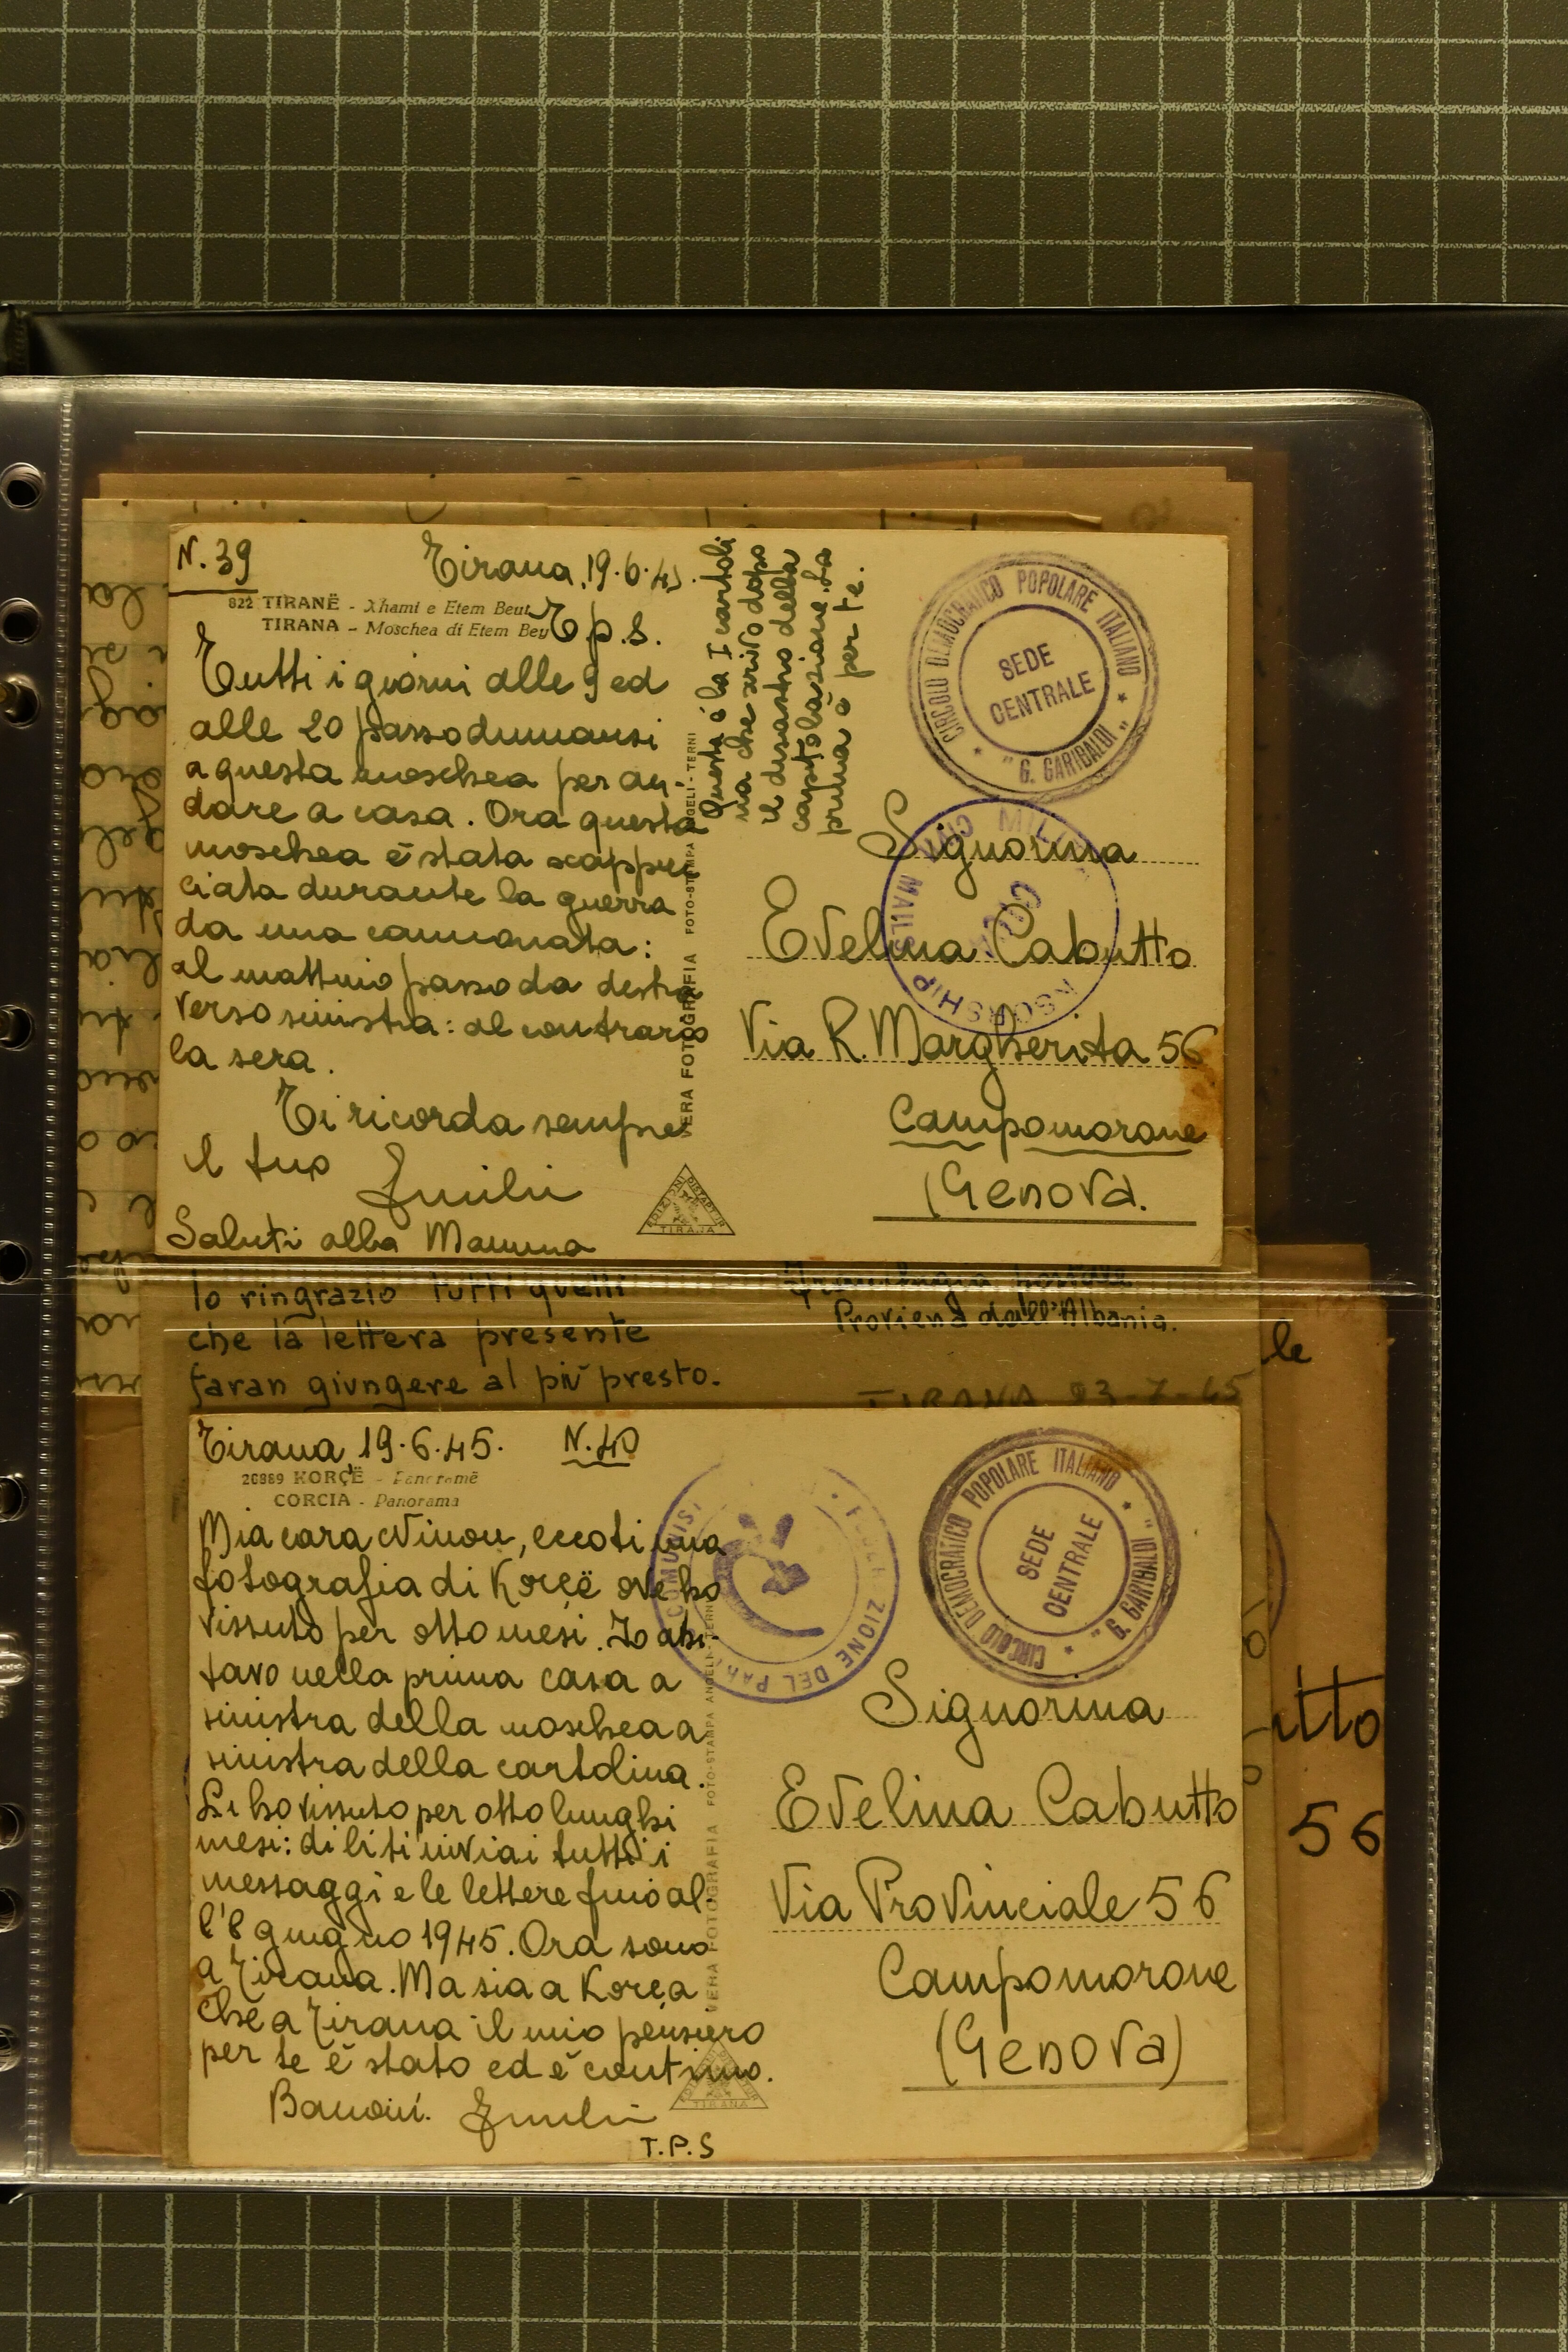 N. 39
Tirana, 19.6.45.
822 TIRANË - Xhami e Etem Beut
TIRANA - Moschea di Etem Bey
T p.s.
Tutti i giorni alle 9 ed
alle 20 passo dinnanzi
a questa moschea per an-
dare a casa. Ora questa
moschea è stata scappuc
ciata durante la guerra
da una cannonata:
al mattino passo da destra
verso sinistra: al contrario
la sera.
Ti ricorda sempre
il tuo
Saluti alla Mamma
Questa è la I cartoli
na che scrivo dopo
il disastro della
capitolazione. La
prima è per te.
VERA FOTOGRAFIA FOTO-STAMPA ANGELI - TERNI
EDIZIONI
TIRANA
CIRCOLO DEMOCRATICO POPOLARE ITALIANO
* "G. GARIBALDI" *
SEDE
CENTRALE
Signorina
Evelina Cabutto
Via R. Margherita 56
Campomorone
(Genova.
Io ringrazio tutti quelli
che la lettera presente
faran giungere al più presto.
Proviene dall'Albania.
TIRANA 23-7-45
le
utto
56
Tirana, 19.6.45. N. 40
26889 KORÇË - Panoramë
CORCIA - Panorama
Mia cara Ninon, eccoti una
fotografia di Korçë ove ho
vissuto per otto mesi. Io abi-
tavo nella prima casa a
sinistra della moschea a
sinistra della cartolina.
Lì ho vissuto per otto lunghi
mesi: di lì ti inviai tutti i
messaggi e le lettere fino al-
l'8 giugno 1945. Ora sono
a Tirana. Ma sia a Korça
che a Tirana il mio pensiero
per te è stato ed è continuo.
T.P.S
VERA FOTOGRAFIA FOTO-STAMPA ANGELI - TERNI
TIRANA
CIRCOLO DEMOCRATICO POPOLARE ITALIANO
* "G. GARIBALDI" *
SEDE
CENTRALE
Signorina
Evelina Cabutto
Via Provinciale 56
Campomorone
(Genova)